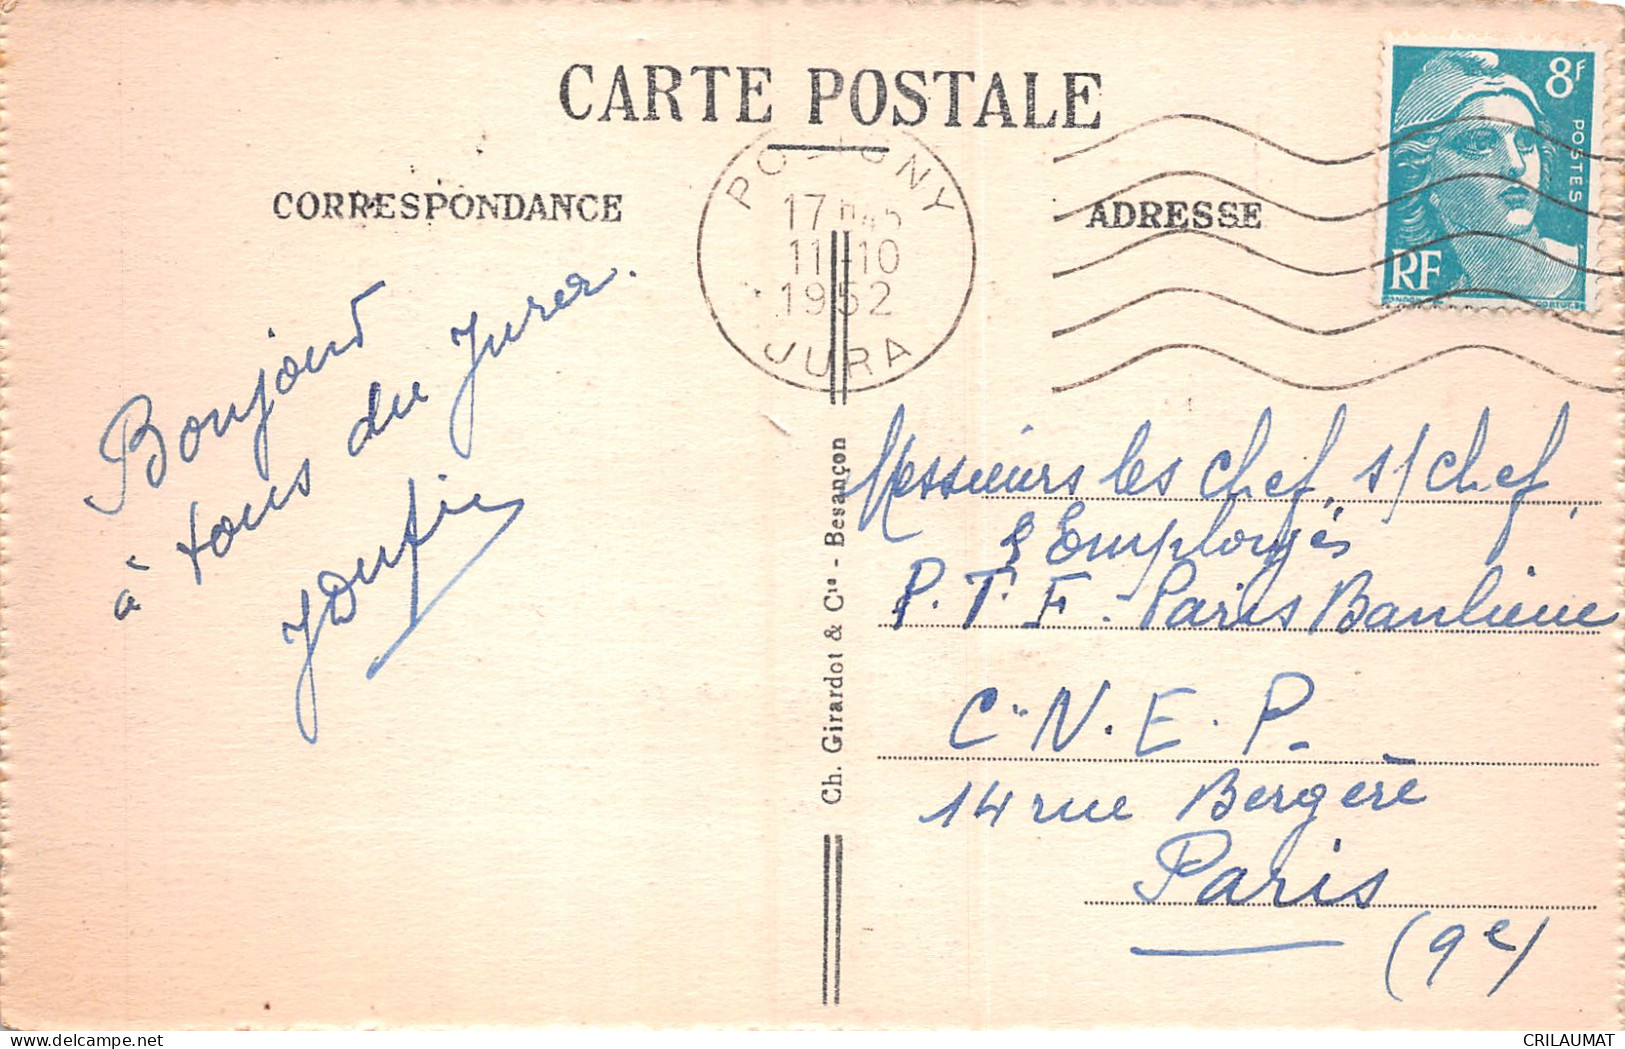 CARTE POSTALE
CORRESPONDANCE
ADRESSE
POLIGNY
17H45
11-10
1952
JURA
8F
POSTES
RF
GANDON
CORTOT SC
Bonjour
à tous du Jura.
Ch. Girardot & Cie - Besançon
Messieurs les chef, s/chef,
& Employés
P. T. F. - Paris Banlieue
C. N. E. P.
14 rue Bergère
Paris
(9e)
CRILAUMAT